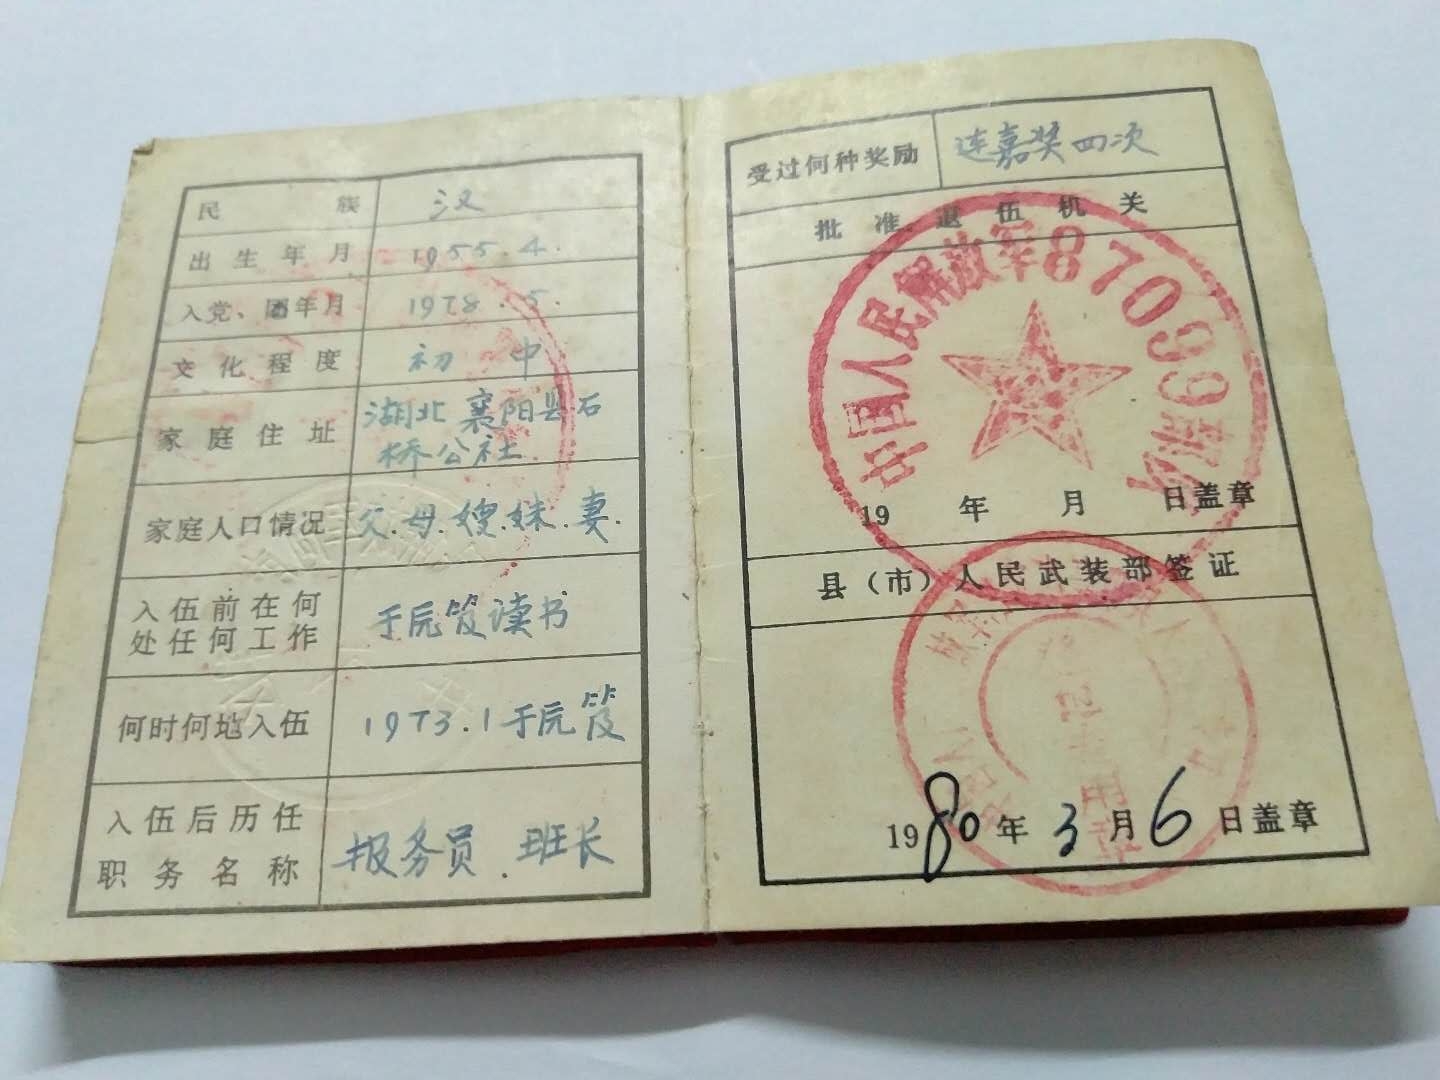 民族 汉
出生年月 1955.4.
入党、团年月 1978.5.
文化程度 初中
家庭住址 湖北襄阳县石
桥公社
家庭人口情况 父.母.嫂.妹.妻.
入伍前在何
处任何工作 于原籍读书
何时何地入伍 1973.1于原籍
入伍后历任
职务名称 报务员.班长
受过何种奖励 连嘉奖四次
批准退伍机关
中国人民解放军87099部队
19 年 月 日盖章
县(市)人民武装部签证
1980年3月6日盖章